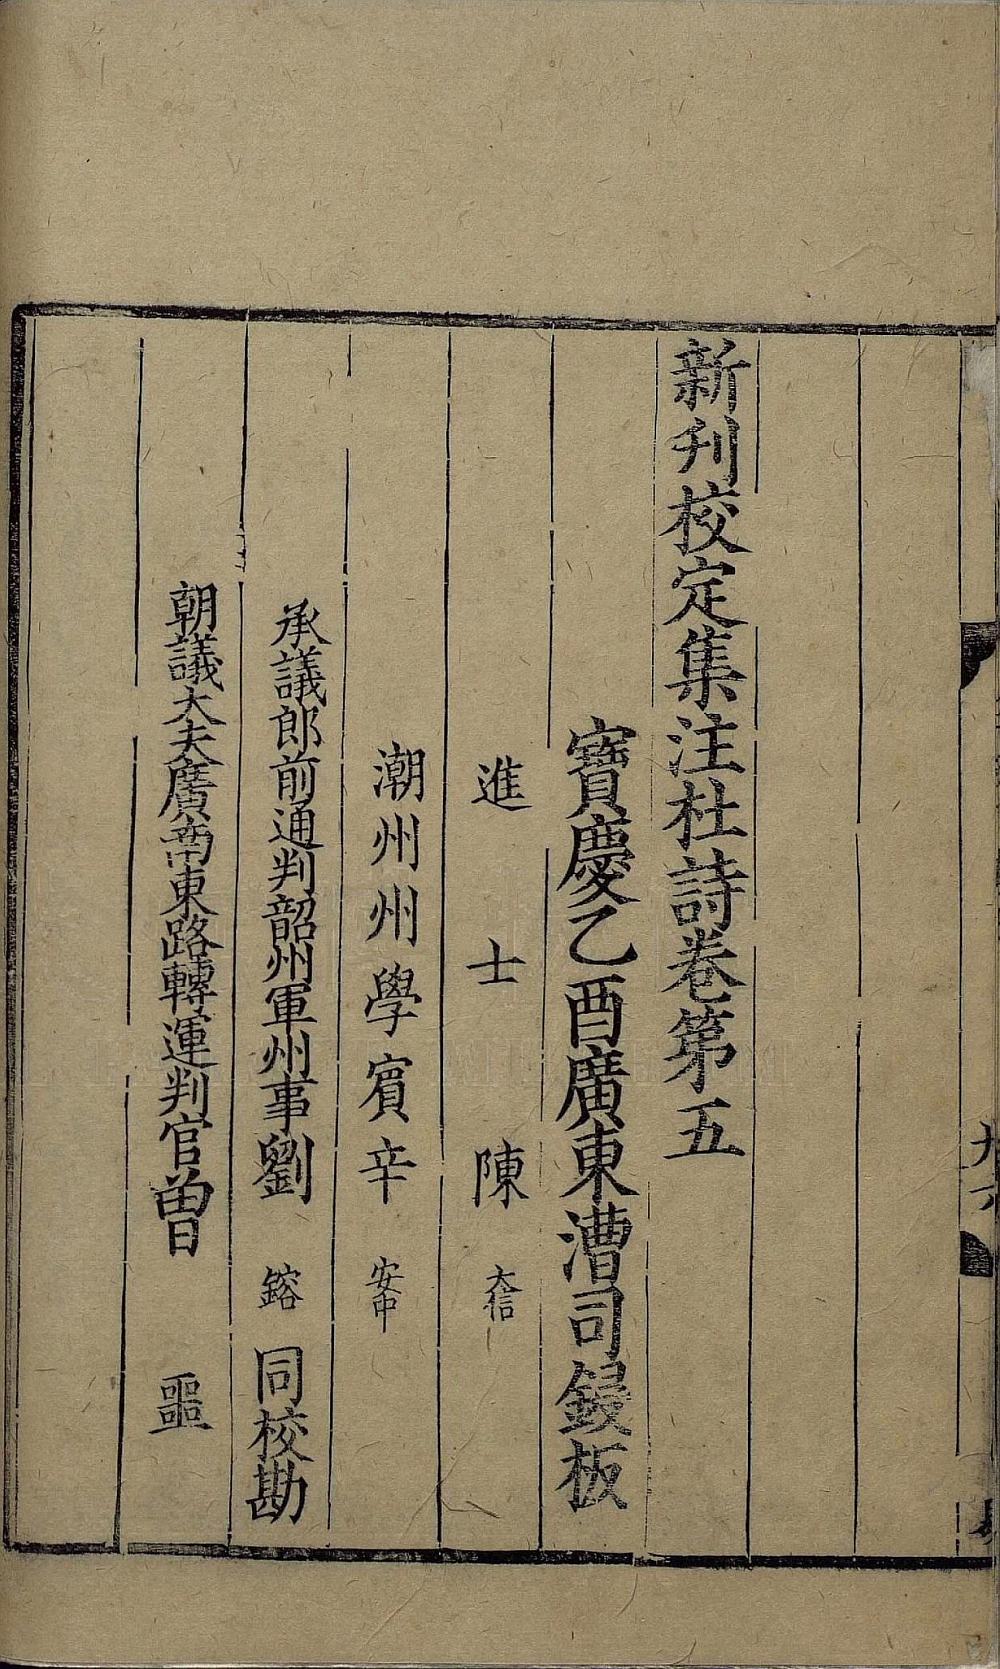 新刋校定集注杜詩卷第五
寶慶乙酉廣東漕司鋟板
進士陳大信
潮州州學賓辛安中
承議郎前通判韶州軍州事劉鎔同校勘
朝議大夫廣南東路轉運判官曽噩